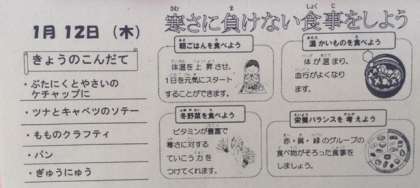 1月12日（木）
寒さに負けない食事をしよう
きょうのこんだて
・ぶたにくとやさいの
ケチャップに
・ツナとキャベツのソテー
・もものクラフティ
・パン
・ぎゅうにゅう
朝ごはんを食べよう
体温を上昇させ、
1日を元気にスタート
することができます。
温かいものを食べよう
体が温まり、
血行がよくなり
ます。
冬野菜を食べよう
ビタミンが豊富で
寒さに対する
ていこう力を
つけてくれます。
栄養バランスを考えよう
赤・黄・緑のグループの
食べ物がそろった食事を
しましょう。